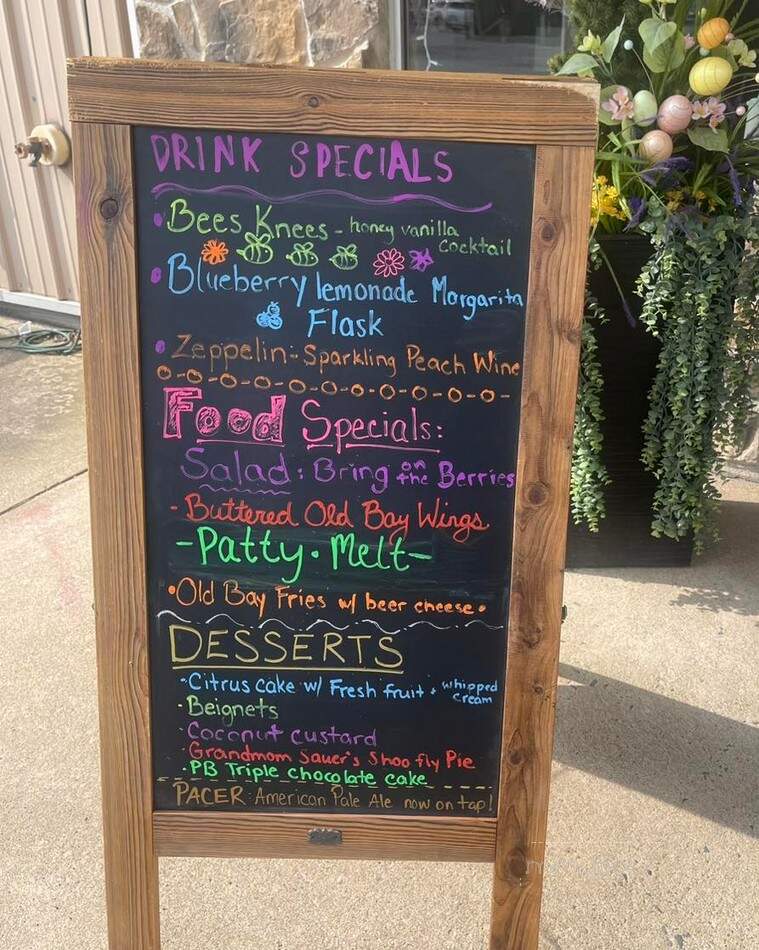 DRINK SPECIALS
• Bees Knees - honey vanilla
Cocktail
• Blueberry lemonade Margarita
Flask
• Zeppelin - Sparkling Peach Wine
Food Specials:
Salad: Bring on the Berries
- Buttered Old Bay Wings
- Patty • Melt -
• Old Bay Fries w/ beer cheese •
DESSERTS
• Citrus cake w/ Fresh fruit + whipped cream
• Beignets
• Coconut custard
• Grandmom Sauer's Shoo fly Pie
• PB Triple chocolate cake
PACER: American Pale Ale now on tap!